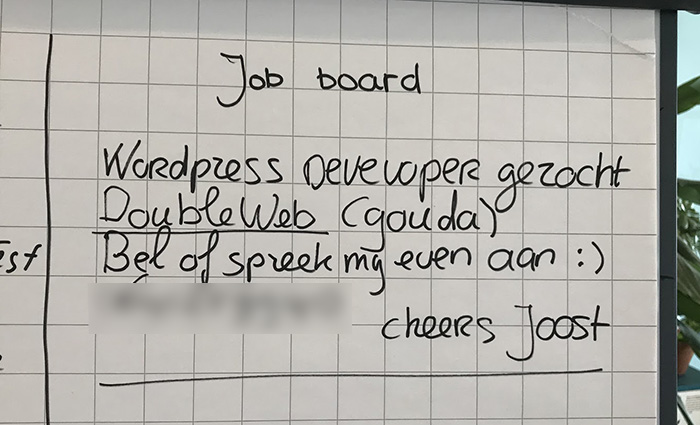 Job board
Wordpress Developer gezocht
DoubleWeb (gouda)
Bel of spreek mij even aan :)
cheers Joost